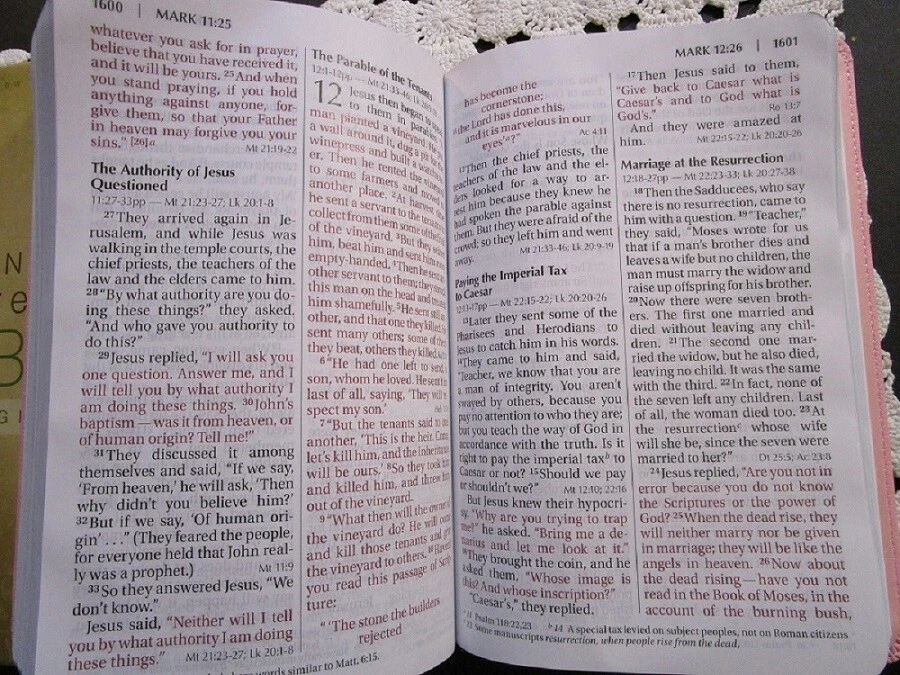 1600 | MARK 11:25
whatever you ask for in prayer,
believe that you have received it,
and it will be yours. 25And when
you stand praying, if you hold
anything against anyone, for-
give them, so that your Father
in heaven may forgive you your
sins." [26]a
Mt 21:19-22
The Authority of Jesus
Questioned
11:27-33pp — Mt 21:23-27; Lk 20:1-8
27They arrived again in Je-
rusalem, and while Jesus was
walking in the temple courts, the
chief priests, the teachers of the
law and the elders came to him.
28"By what authority are you do-
ing these things?" they asked.
"And who gave you authority to
do this?"
29Jesus replied, "I will ask you
one question. Answer me, and I
will tell you by what authority I
am doing these things. 30John's
baptism — was it from heaven, or
of human origin? Tell me!"
31They discussed it among
themselves and said, "If we say,
'From heaven,' he will ask, 'Then
why didn't you believe him?'
32But if we say, 'Of human ori-
gin' . . ." (They feared the people,
for everyone held that John real-
ly was a prophet.)
Mt 11:9
33So they answered Jesus, "We
don't know."
Jesus said, "Neither will I tell
you by what authority I am doing
these things."
Mt 21:23-27; Lk 20:1-8
The Parable of the Tenants
12:1-12pp — Mt 21:33-46;
12 Jesus then began to
to them in parables:
man planted a vineyard. He
a wall around it, dug a pit for
winepress and built a
er. Then he rented the
to some farmers and moved
another place. 2At harvest
he sent a servant to the tenants
collect from them some of the
of the vineyard. 3But they
him, beat him and sent him
empty-handed. 4Then he sent
other servant to them; they
this man on the head and
him shamefully. 5He sent still
other, and that one they killed.
sent many others; some of
they beat, others they killed.
6"He had one left to send,
son, whom he loved. He sent
last of all, saying, 'They will
spect my son.'
7"But the tenants said to
another, 'This is the heir. Come,
let's kill him, and the inheritance
will be ours.' 8So they took him
and killed him, and threw him
out of the vineyard.
9"What then will the owner
the vineyard do? He will come
and kill those tenants and
the vineyard to others. 10Haven't
you read this passage of
ture:
"'The stone the builders
rejected
words similar to Matt. 6:15.
MARK 12:26 | 1601
has become the
cornerstone;
the Lord has done this,
and it is marvelous in our
eyes'?"
Ac 4:11
12Then the chief priests, the
teachers of the law and the el-
ders looked for a way to ar-
rest him because they knew he
had spoken the parable against
them. But they were afraid of the
crowd; so they left him and went
away.
Mt 21:33-46; Lk 20:9-19
Paying the Imperial Tax
to Caesar
12:13-17pp — Mt 22:15-22; Lk 20:20-26
13Later they sent some of the
Pharisees and Herodians to
Jesus to catch him in his words.
14They came to him and said,
"Teacher, we know that you are
a man of integrity. You aren't
swayed by others, because you
pay no attention to who they are;
but you teach the way of God in
accordance with the truth. Is it
right to pay the imperial taxb to
Caesar or not? 15Should we pay
or shouldn't we?"
Mt 12:10; 22:16
But Jesus knew their hypocri-
sy. "Why are you trying to trap
me?" he asked. "Bring me a de-
narius and let me look at it."
16They brought the coin, and he
asked them, "Whose image is
this? And whose inscription?"
"Caesar's," they replied.
17Then Jesus said to them,
"Give back to Caesar what is
Caesar's and to God what is
God's."
Ro 13:7
And they were amazed at
him.
Mt 22:15-22; Lk 20:20-26
Marriage at the Resurrection
12:18-27pp — Mt 22:23-33; Lk 20:27-38
18Then the Sadducees, who say
there is no resurrection, came to
him with a question. 19"Teacher,"
they said, "Moses wrote for us
that if a man's brother dies and
leaves a wife but no children, the
man must marry the widow and
raise up offspring for his brother.
20Now there were seven broth-
ers. The first one married and
died without leaving any chil-
dren. 21The second one mar-
ried the widow, but he also died,
leaving no child. It was the same
with the third. 22In fact, none of
the seven left any children. Last
of all, the woman died too. 23At
the resurrectionc whose wife
will she be, since the seven were
married to her?"
Dt 25:5; Ac 23:8
24Jesus replied, "Are you not in
error because you do not know
the Scriptures or the power of
God? 25When the dead rise, they
will neither marry nor be given
in marriage; they will be like the
angels in heaven. 26Now about
the dead rising — have you not
read in the Book of Moses, in the
account of the burning bush,
a 11 Psalm 118:22,23 b 14 A special tax levied on subject peoples, not on Roman citizens
c 23 Some manuscripts resurrection, when people rise from the dead,